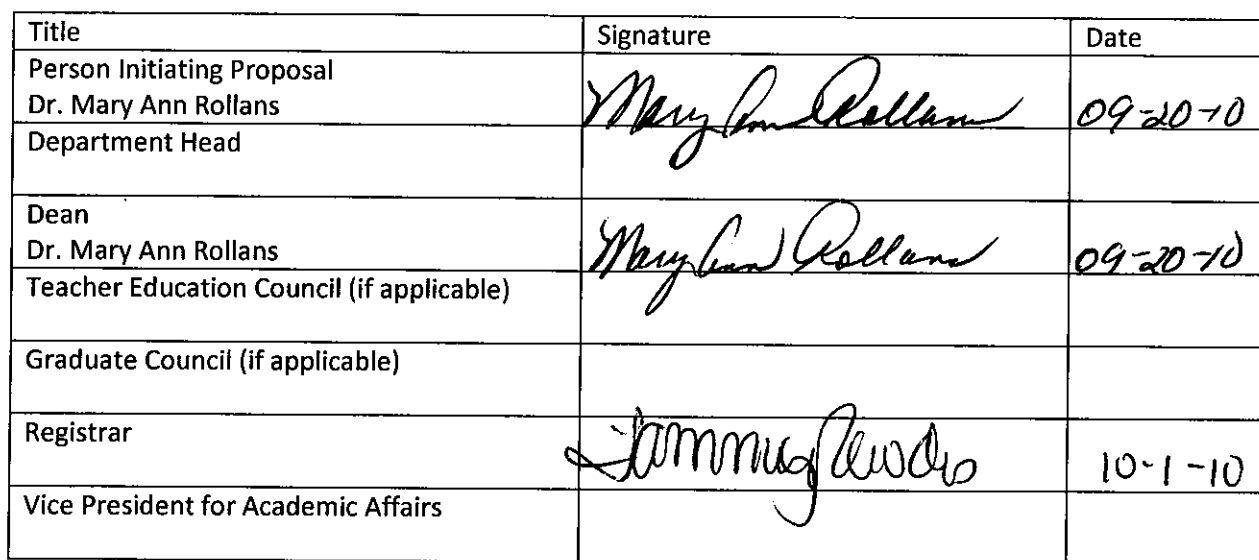 Title Signature Date
Person Initiating Proposal
Dr. Mary Ann Rollans Mary Ann Rollans 09-20-10
Department Head
Dean
Dr. Mary Ann Rollans Mary Ann Rollans 09-20-10
Teacher Education Council (if applicable)
Graduate Council (if applicable)
Registrar 10-1-10
Vice President for Academic Affairs